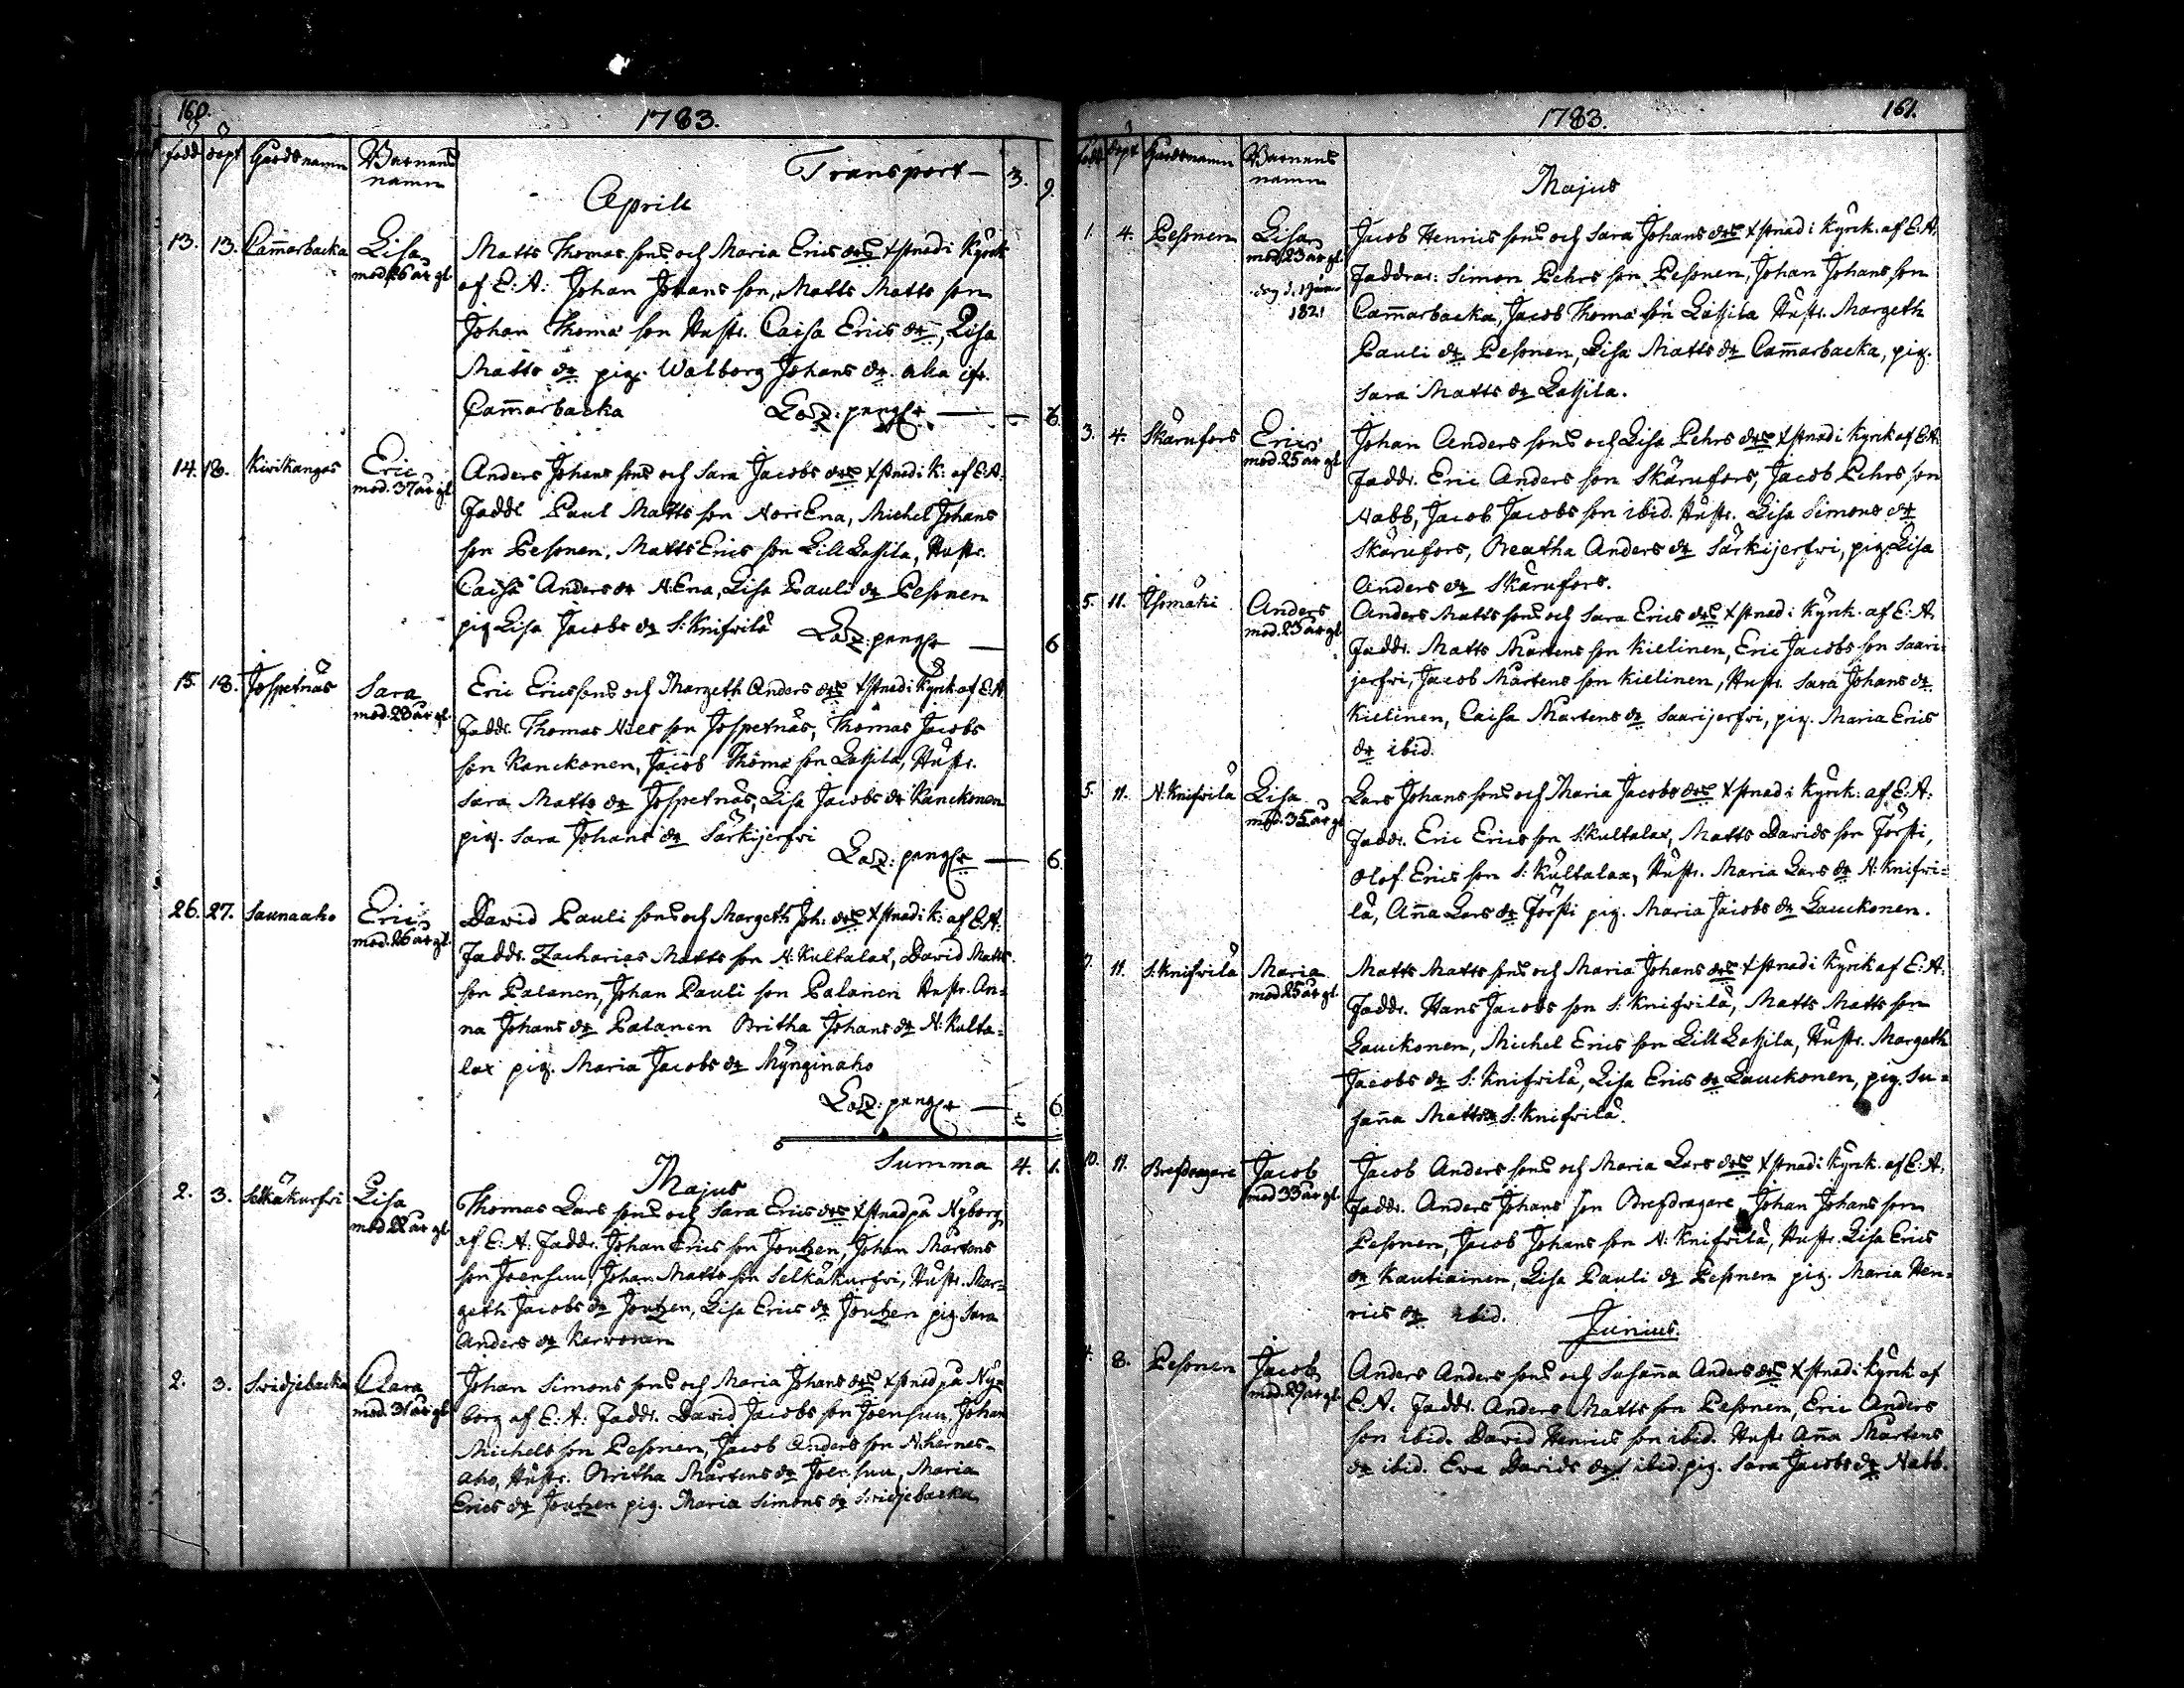 160.
1783.
född döpt Gårds namn Barnens namn
Transport — 3. 9.
Aprill
13. 13. Cam̄arbacka Lisa Matts Thomas sons och Maria Erics drs xstnad i Kyrk
mod. 26 år gl. af E: A: Johan Johans son, Matts Matts son
Johan Thomæ son Hustr. Caisa Erics dr, Lisa
Matts dr pig. Walborg Johans dr. alla ifr.
Cam̄arbacka Laz: peng — 6.
14. 18. Kivikangas Eric Anders Johans sons och Sara Jacobs drs xstnad i K: af E: A:
mod. 37 år gl. Faddr Paul Matts son Norr Ena, Michel Johans
son Pesonen, Matts Erics son Lill Lassila, Hustr.
Caisa Anders dr N: Ena, Lisa Pauli dr Pesonen
pig Lisa Jacobs dr S: Knifvilä Laz: peng — 6
15. 18. Jospetnäs Sara Eric Ericssons och Margeth Anders drs xstnad i Kyrk. af E: A
mod. 28 år gl. Faddr. Thomas Nils son Jospetnäs, Thomas Jacobs
son Kanckonen, Jacob Thomæ son Lassila, Hustr.
Sara Matts dr Jospetnäs, Lisa Jacobs dr Kanckonen
pig. Sara Johans dr Särkijerfvi
Laz: peng — 6.
26. 27. Saunaaho Eric David Pauli sons och Margeth Joh: drs xstnad i K: af E: A:
mod. 26 år gl. Faddr. Zacharias Matts son N: Kultalax, David Matts
son Palanen, Johan Pauli son Palanen Hustr. An=
na Johans dr Palanen Britha Johans dr N: Kulta=
lax pig. Maria Jacobs dr Mynginaho
Laz: peng — 6
Summa 4. 1.
Majus
2. 3. Selkäkurfvi Lisa Thomas Lars sons och Sara Erics drs xstnad på Nyborg
mod. 22 år gl. af E: A: Faddr. Johan Erics son Joutzen, Johan Mårtens
son Joensuu, Johan Matts son Selkäkurfvi, Hustr. Mar=
geth Jacobs dr Joutzen, Lisa Erics dr Joutzen pig. Sara
Anders dr Karvonen
2. 3. Svidjebacka Clara Johan Simons sons och Maria Johans drs xstnad på Ny=
mod. 31 år gl. borg af E: A: Faddr. David Jacobs son Joensuu, Johan
Michels son Pesonen, Jacob Anders son N: Hernes=
aho, Hustr. Britha Mårtens dr Joensuu, Maria
Erics dr Joutzen pig. Maria Simons dr Svidjebacka
1783.
161.
född döpt Gårdsnamn Barnens namn
Majus
1. 4. Pesonen Lisa Jacob Henrics sons och Sara Johans drs xstnad i Kyrk. af E: A.
mod. 23 år gl. Faddrar: Simon Pehrs son Pesonen, Johan Johans son
1821 Cam̄arbacka, Jacob Thomæ son Lassila Hustr. Margeth
Pauli dr Pesonen, Lisa Matts dr Cam̄arbacka, pig.
Sara Matts dr Lassila.
3. 4. Skärufors Eric Johan Anders sons och Lisa Pehrs drs xstnad i Kyrk af E: A:
mod. 25 år gl. Faddr. Eric Anders son Skärufors, Jacob Pehrs son
Nabb, Jacob Jacobs son ibid. Hustr. Lisa Simons dr
Skärufors, Beatha Anders dr Särkijerfvi, pig. Lisa
Anders dr Skärufors.
5. 11. Isomäki Anders Anders Matts sons och Sara Erics drs xstnad i Kyrk. af E: A.
mod. 23 år gl. Faddr. Matts Mårtens son Kielinen, Eric Jacobs son Saari=
jerfvi, Jacob Mårtens son Kielinen, Hustr. Sara Johans dr
Kielinen, Caisa Mårtens dr Saarijerfvi, pig. Maria Erics
dr ibid.
5. 11. N: Knifvilä Lisa Lars Johans sons och Maria Jacobs drs xstnad i Kyrk: af E: A:
mod. 35 år gl. Faddr. Eric Erics son S: Kultalax, Matts Davids son Försti,
Olof Erics son S: Kultalax, Hustr. Maria Lars dr N: Knifvi=
lä, Ann̄a Lars dr Försti pig. Maria Jacobs dr Lauckonen.
7. 11. S: Knifvilä Maria Matts Matts sons och Maria Johans drs xstnad i Kyrk af E: A:
mod. 25 år gl. Faddr. Hans Jacobs son S: Knifvilä, Matts Matts son
Lauckonen, Michel Erics son Lill Lassila, Hustr. Margeth
Jacobs dr S: Knifvilä, Lisa Erics dr Lauckonen, pig. Su=
san̄a Matts dr S: Knifvilä.
10. 11. Brefdragare Jacob Jacob Anders sons och Maria Lars drs xstnad i Kyrk. af E: A:
mod 33 år gl. Faddr. Anders Johans son Brefdragare Johan Johans son
Pesonen, Jacob Johans son N: Knifvilä, Hustr. Lisa Erics
dr Kautiainen, Lisa Pauli dr Pesonen pig. Maria Hen=
rics dr ibid.
Junius.
4. 8. Pesonen Jacob Anders Anders sons och Susan̄a Anders drs xstnad i Kyrk. af
mod. 29 år gl. E: A. Faddr. Anders Matts son Pesonen, Eric Anders
son ibid. David Henrics son ibid. Hustr An̄a Mårtens
dr ibid. Eva Davids dr ibid. pig. Sara Jacobs dr Nabb.